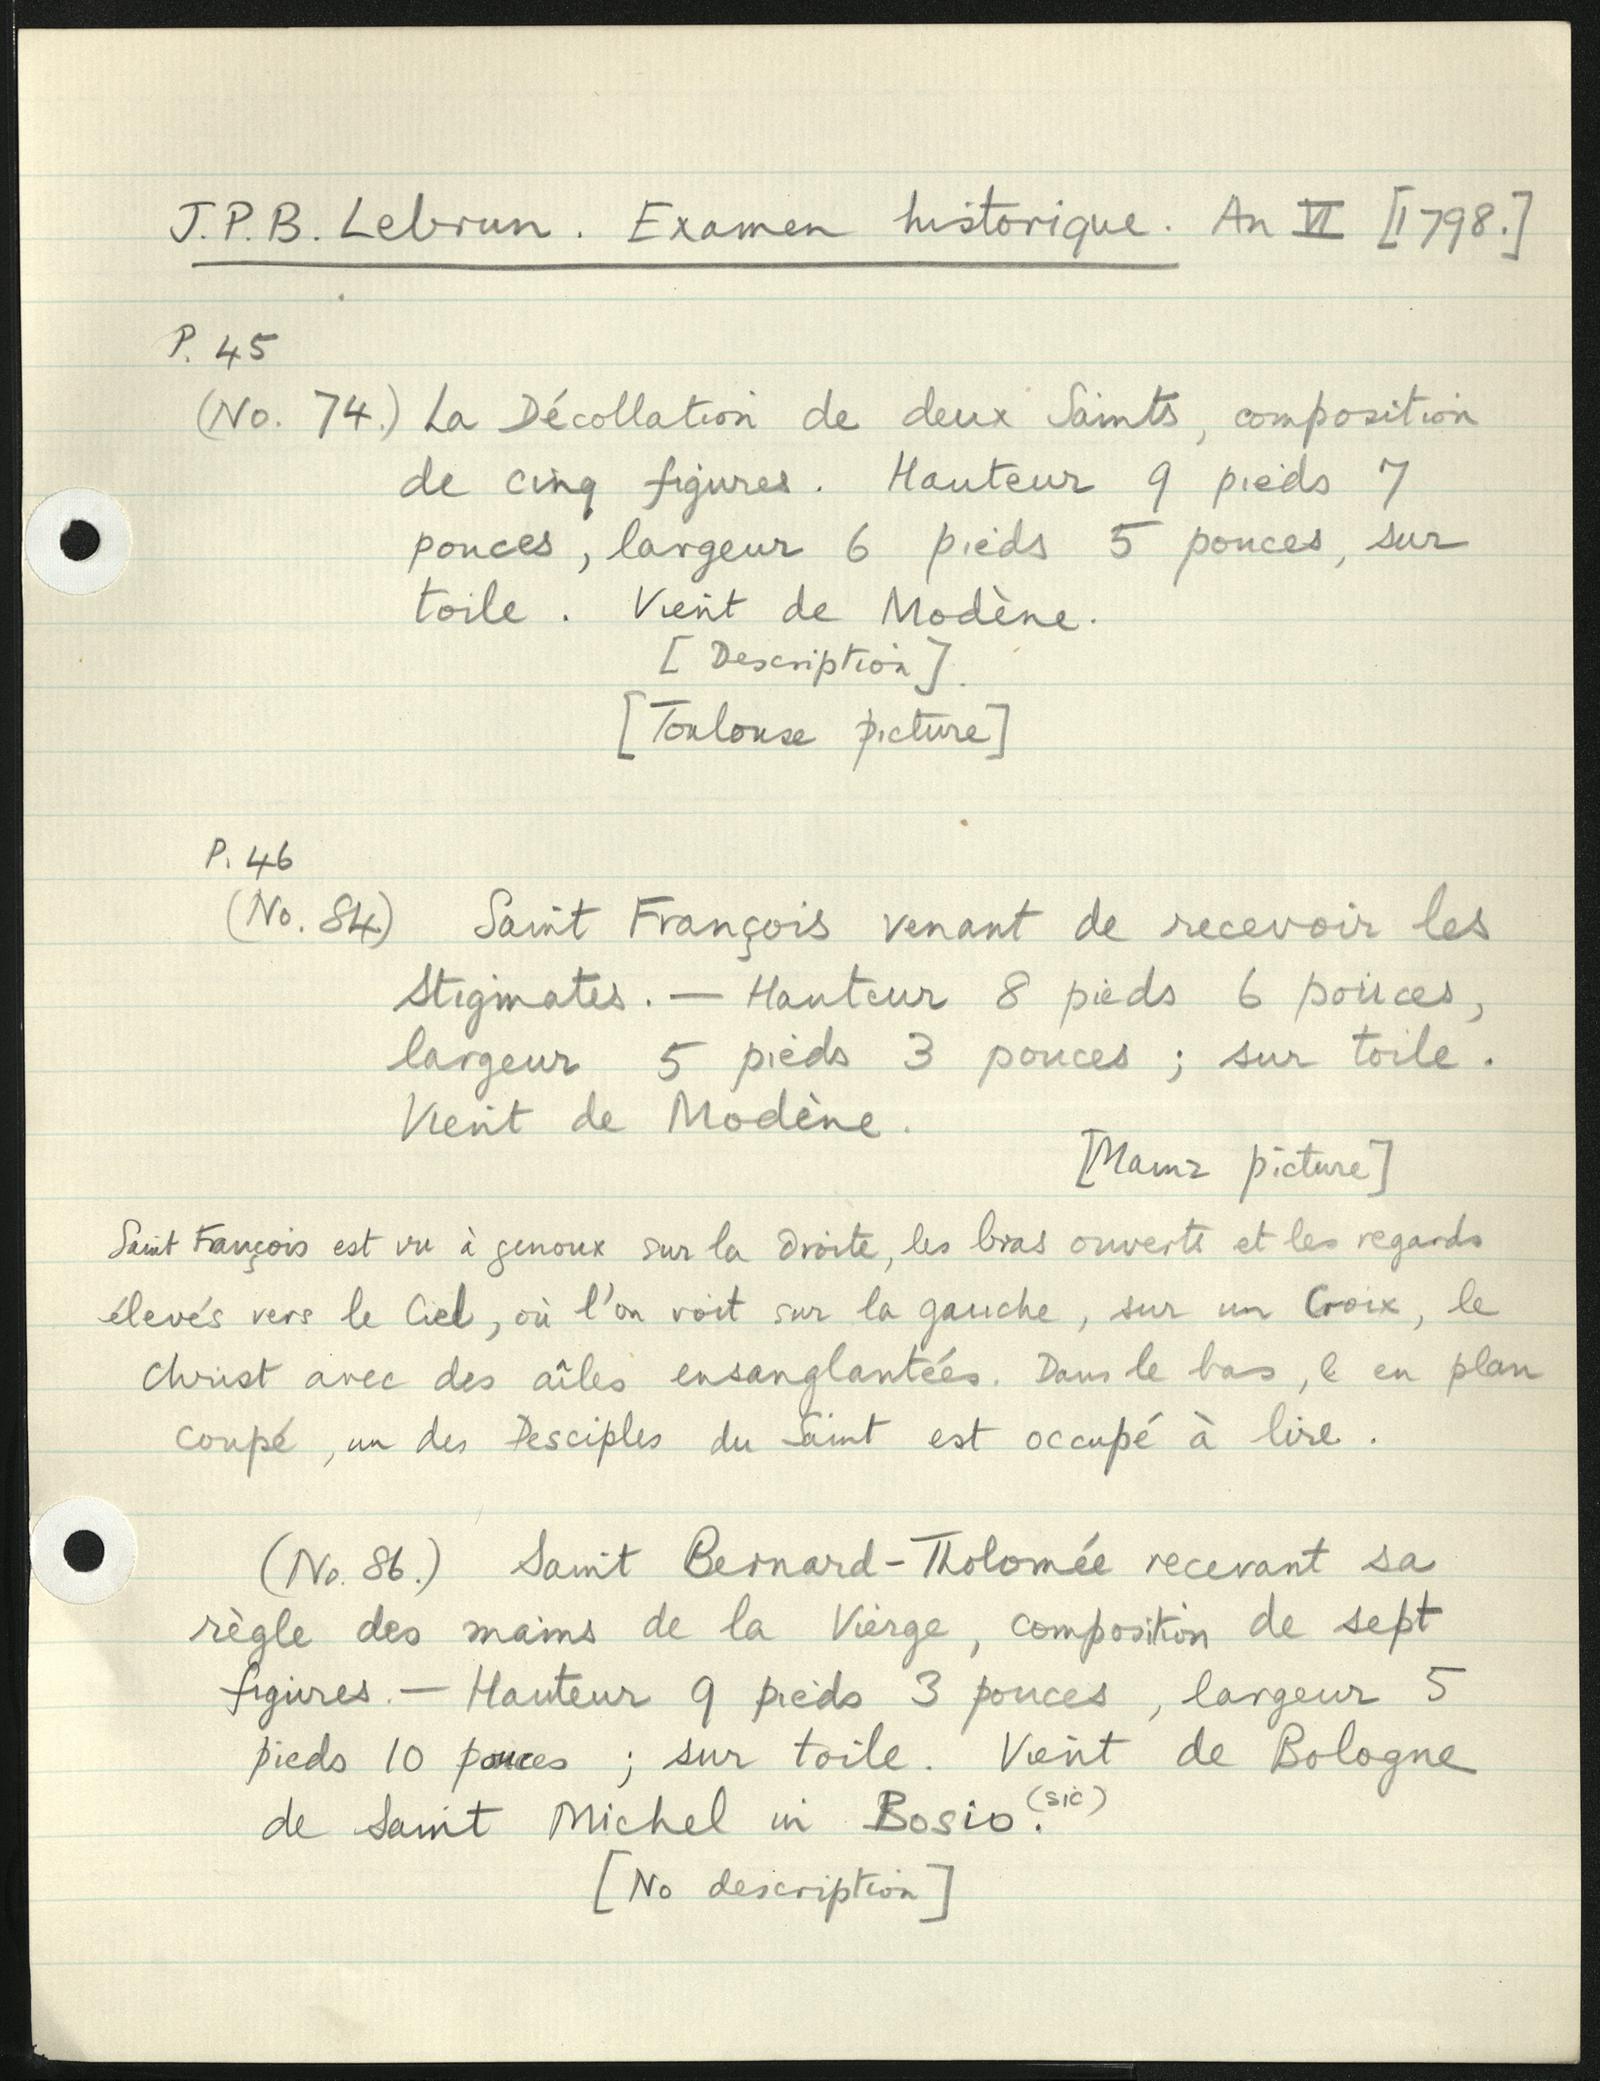 J.P.B. Lebrun. Examen historique. An VI [1798.]
P. 45
(No. 74.) La Décollation de deux Saints, composition
de cinq figures. Hauteur 9 pieds 7
pouces, largeur 6 pieds 5 pouces, sur
toile. Vient de Modène.
[Description].
[Toulouse picture]
P. 46
(No. 84) Saint François venant de recevoir les
Stigmates. — Hauteur 8 pieds 6 pouces,
largeur 5 pieds 3 pouces ; sur toile.
Vient de Modène.
[Mainz picture]
Saint François est vu à genoux sur la droite, les bras ouverts et les regards
élevés vers le Ciel, où l'on voit sur la gauche, sur un Croix, le
Christ avec des aîles ensanglantées. Dans le bas, en plan
coupé, un des Desciples du Saint est occupé à lire.
(No. 86.) Saint Bernard-Tholomée recevant sa
règle des mains de la Vierge, composition de sept
figures. — Hauteur 9 pieds 3 pouces, largeur 5
pieds 10 pouces ; sur toile. Vient de Bologne
de Saint Michel in Bosio. (sic)
[No description]